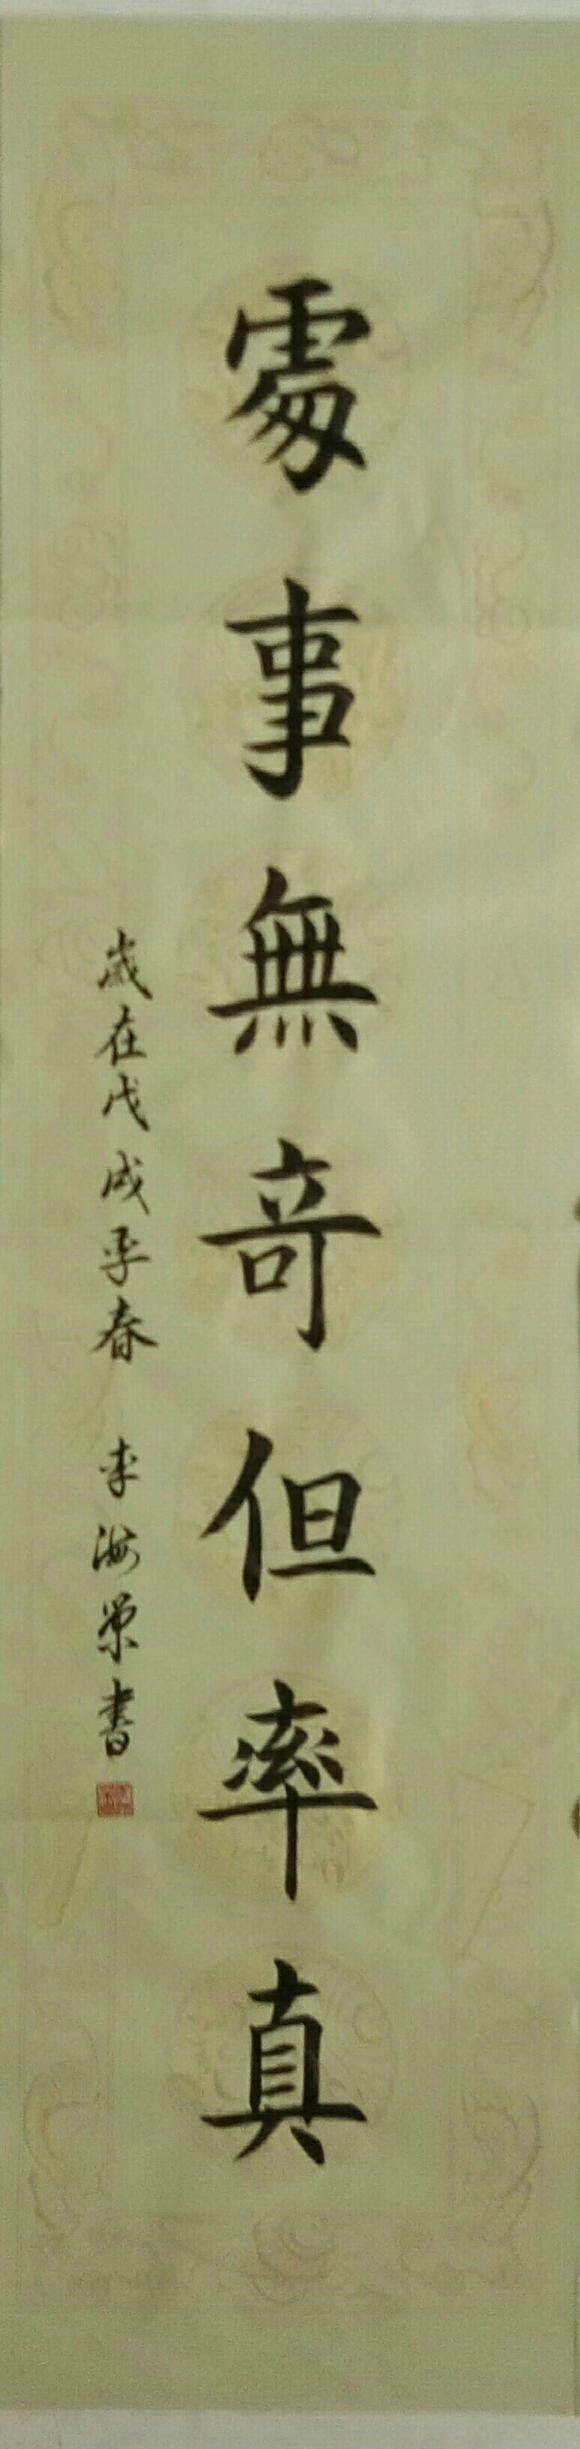 處事無奇但率真
歲在戊戌季春 李海榮書